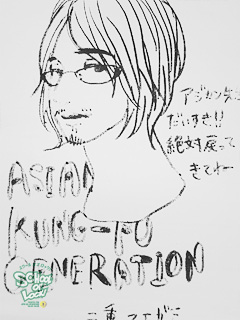 アジカン先生
だいすき!!
絶対戻って
きてねー
ASIAN
KUNG-FU
GENERATION
SCHOOL OF LOCK!